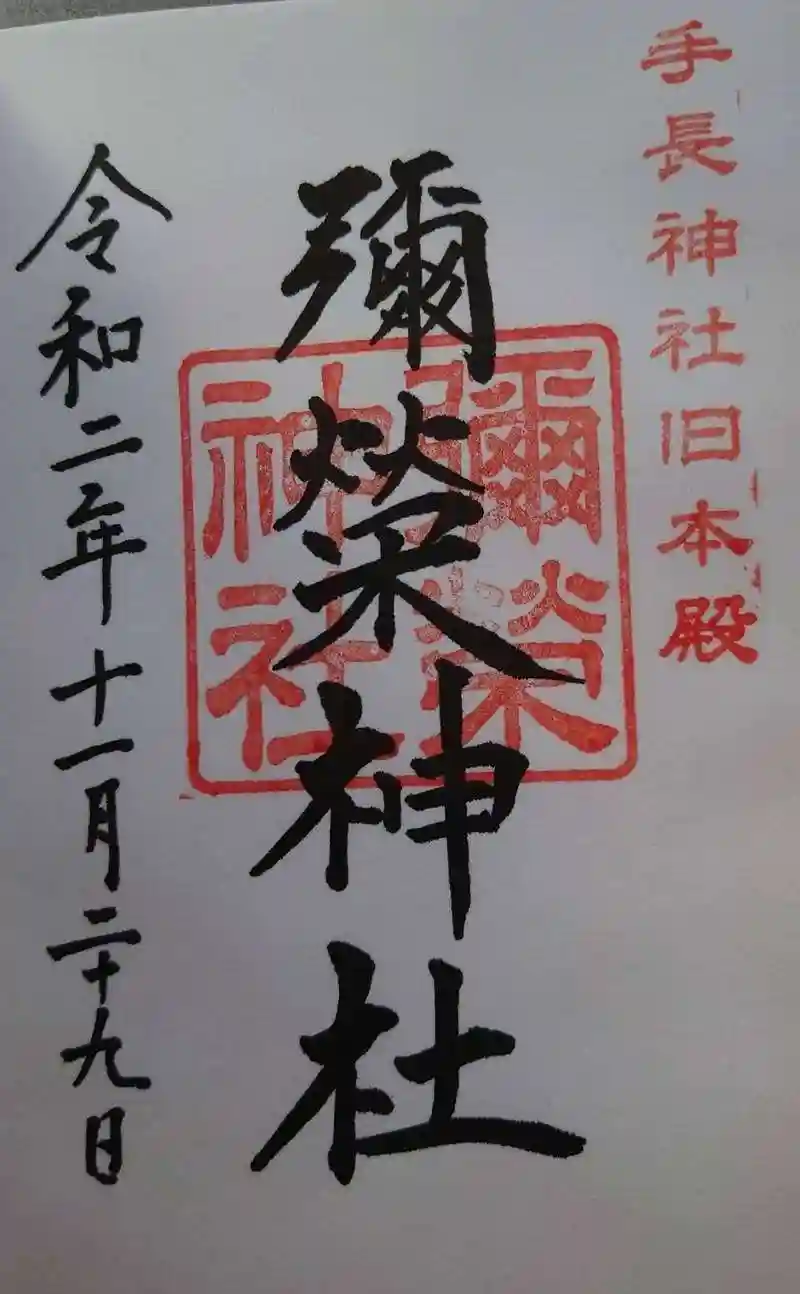 手長神社旧本殿
彌榮神社
彌榮
神社
令和二年十一月二十九日